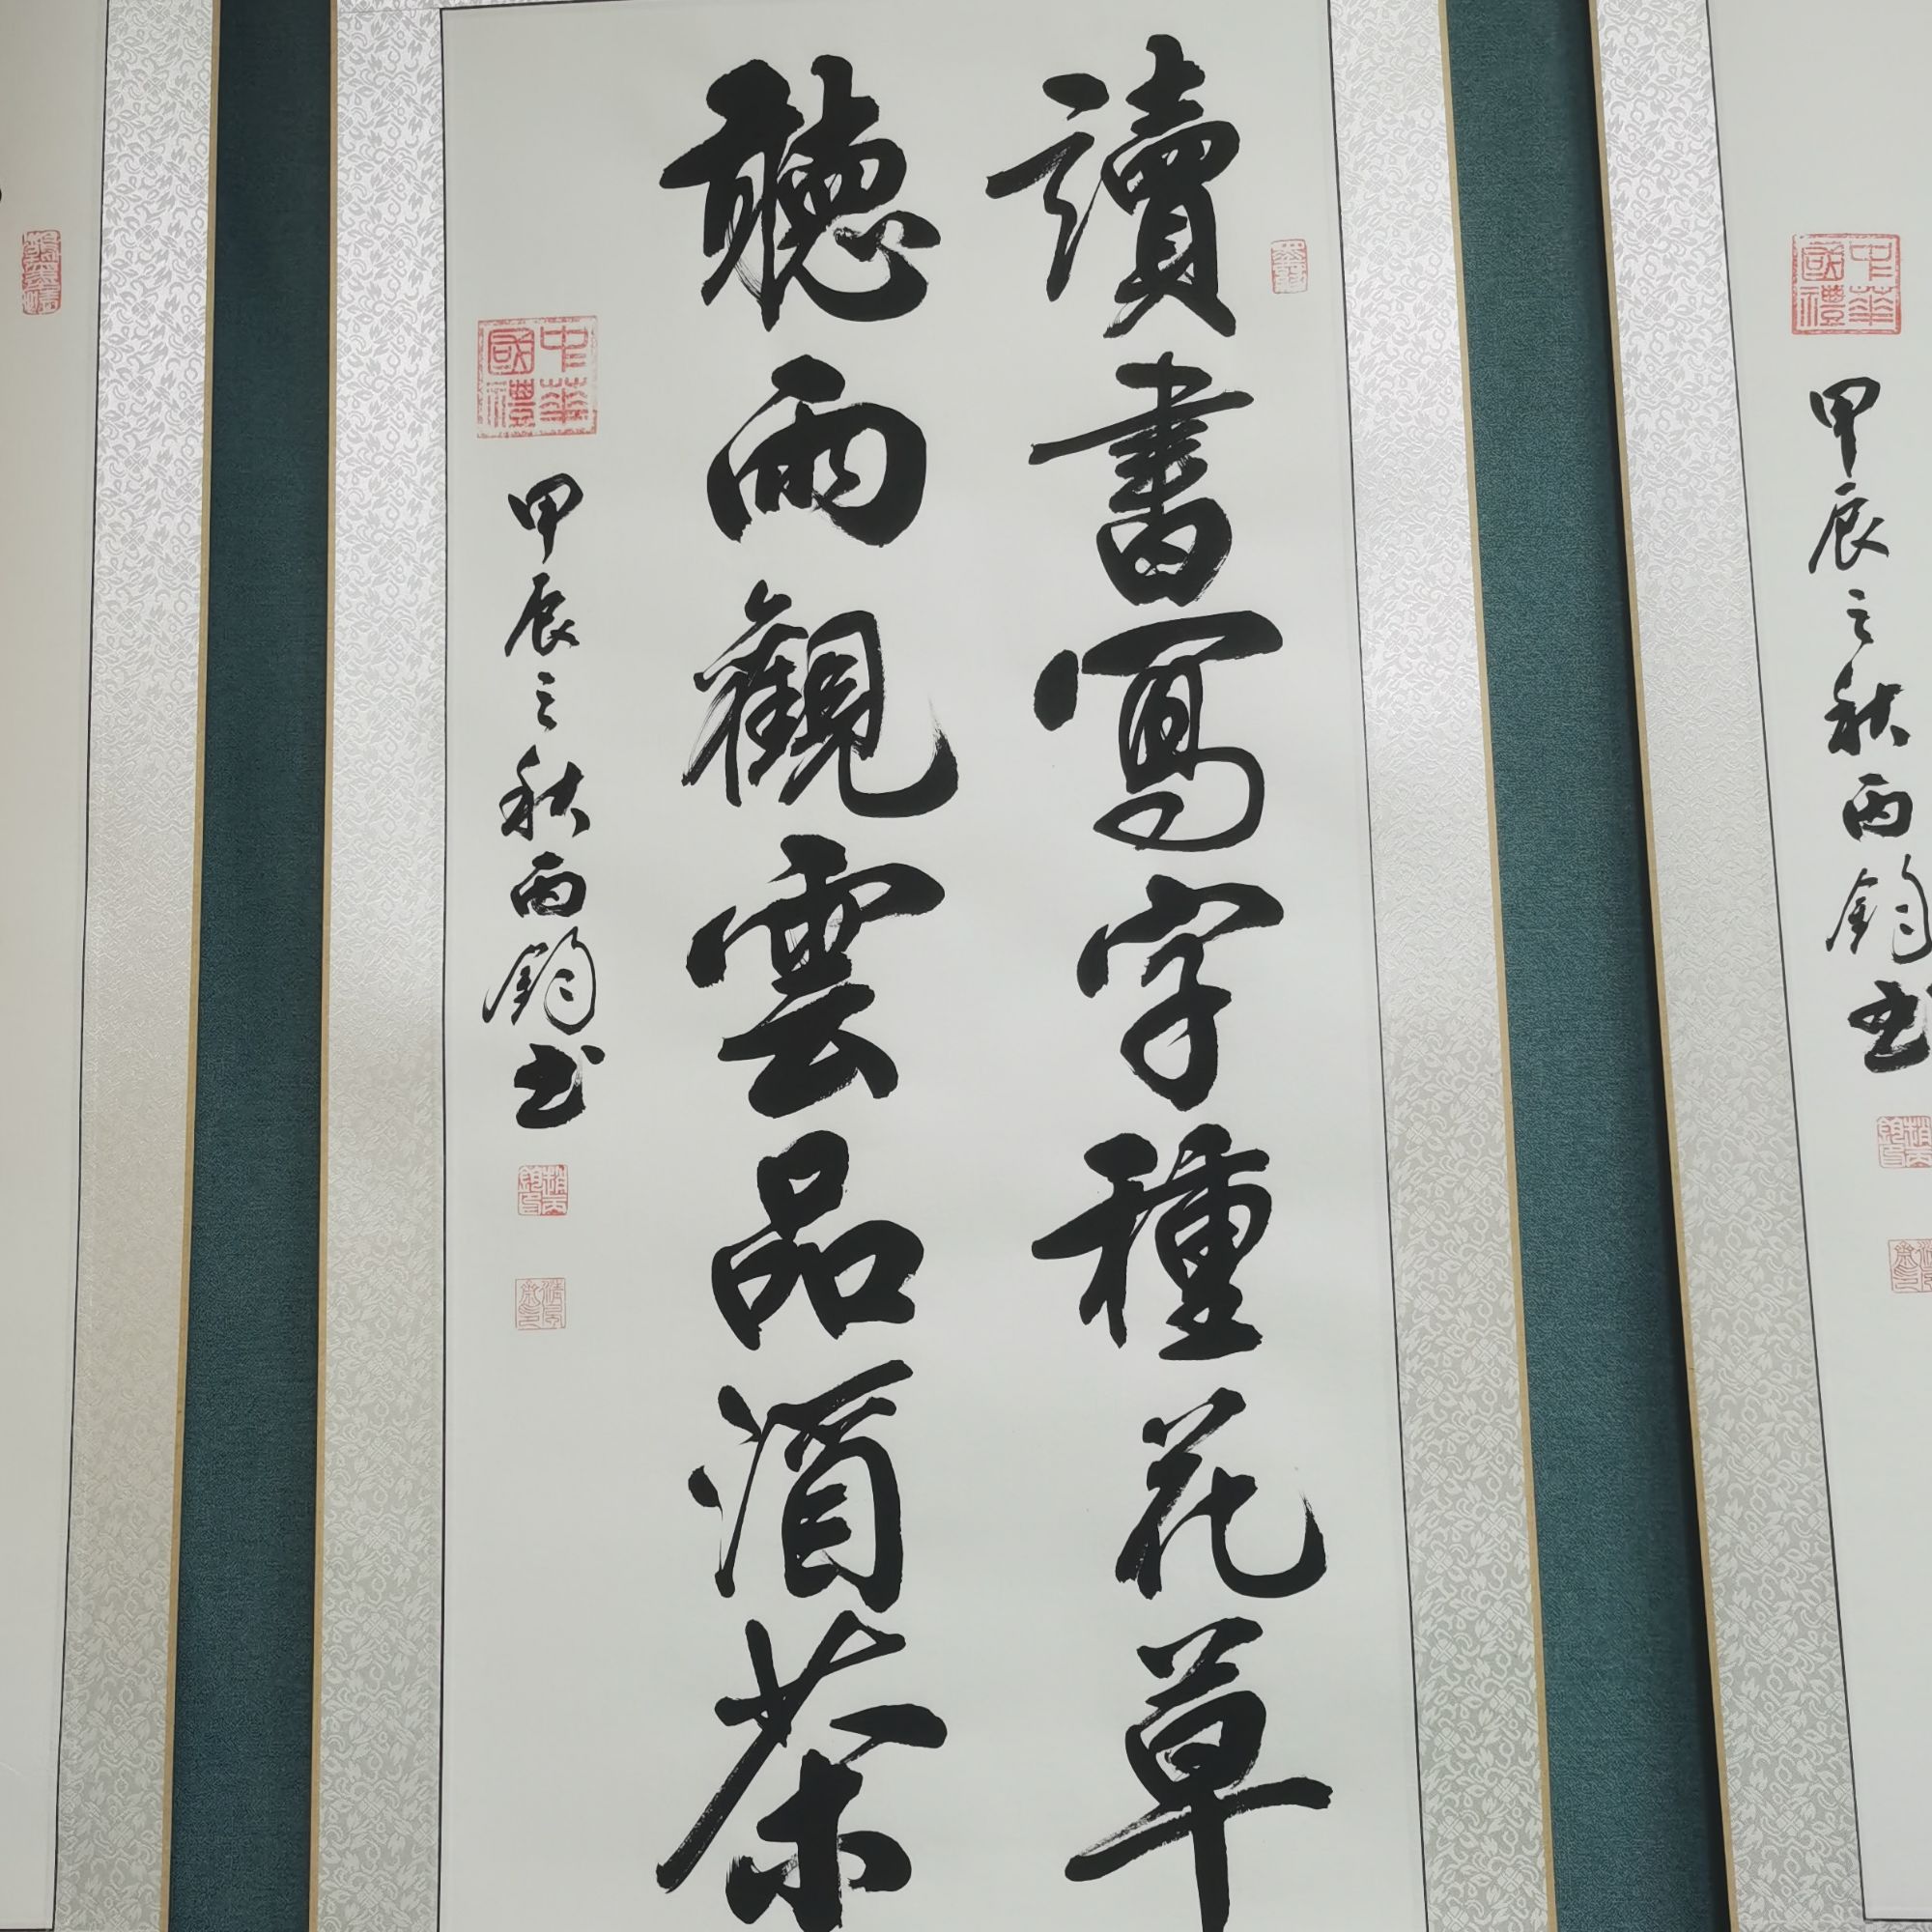 讀書寫字種花草
聽雨觀雲品酒茶
中華國禮
甲辰之秋丙鈞书
中華國禮
甲辰之秋丙鈞书